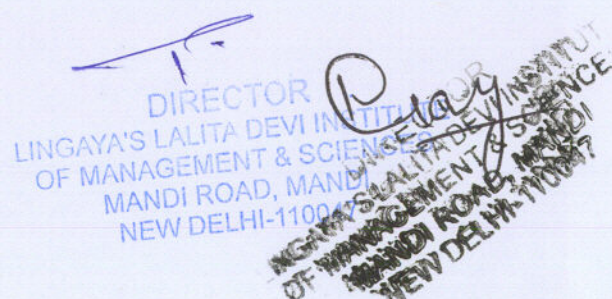 DIRECTOR
LINGAYA'S LALITA DEVI INSTITUTE
OF MANAGEMENT & SCIENCES
MANDI ROAD, MANDI
NEW DELHI-110047
LALITA DEVI INSTITUT
OF MANAGEMENT & SCIENCE
MANDI ROAD, MANDI
NEW DELHI-110047